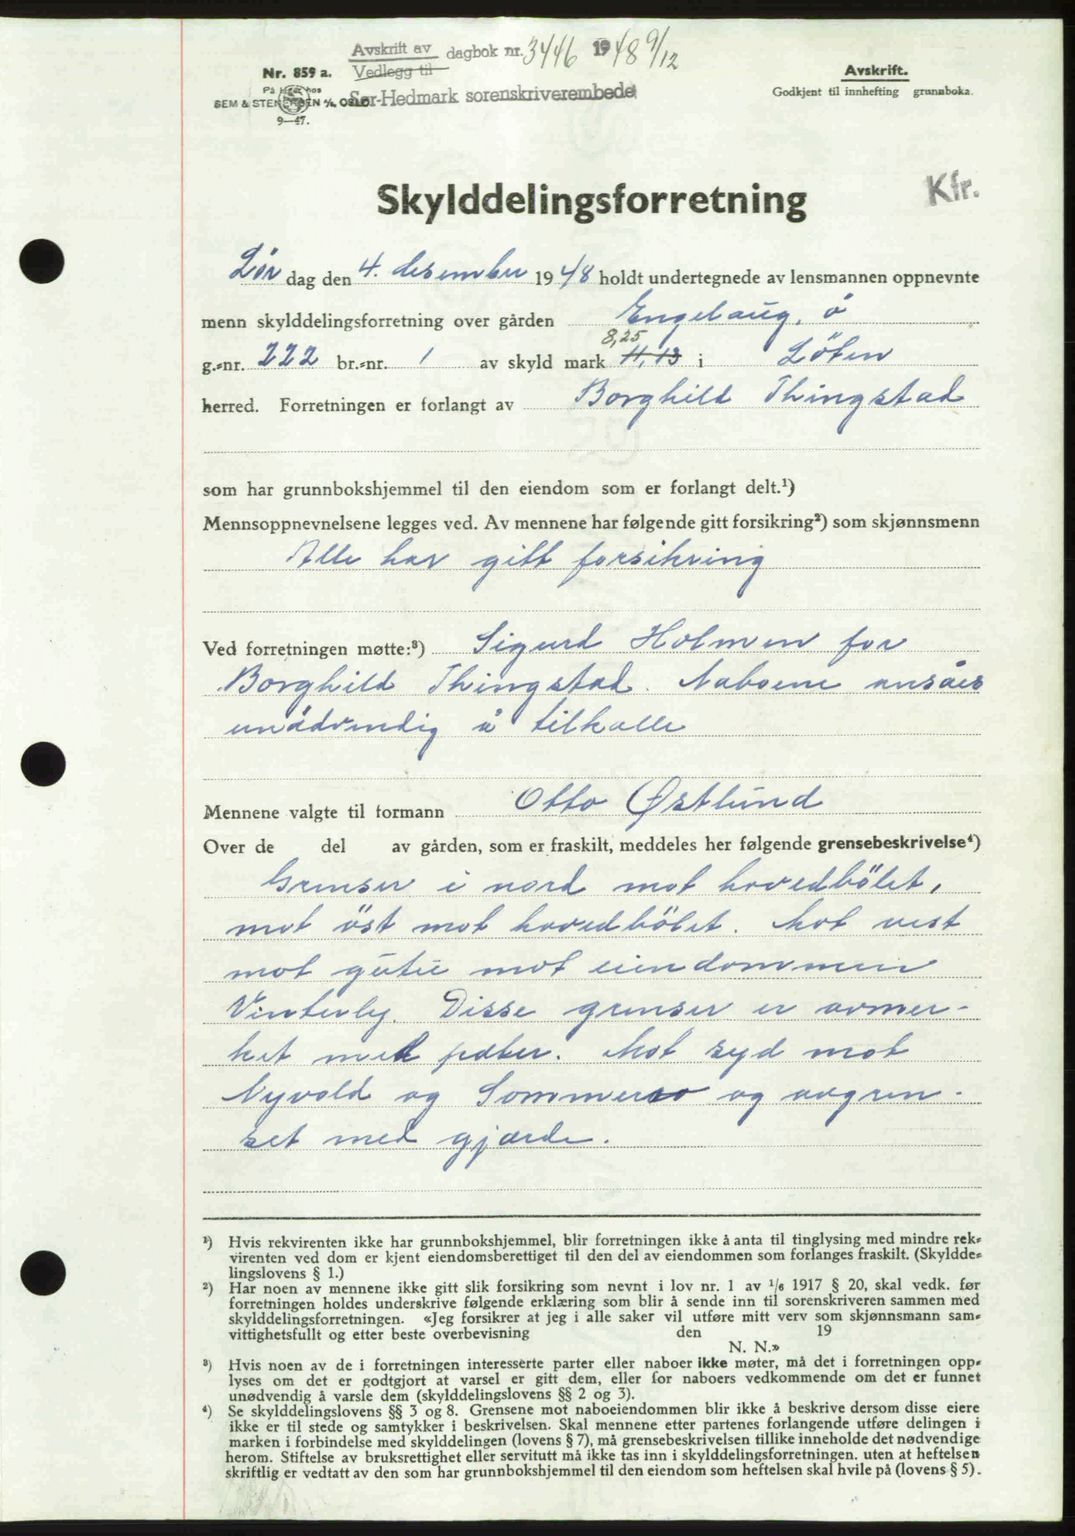 Avskrift av
Vedlegg til
dagbok nr. 3446 1948 9/12
Sør-Hedmark sorenskriverembede
Nr. 859 a.
9—47.
Avskrift.
Godkjent til innhefting grunnboka.
Kfr.
Skylddelingsforretning
Lør dag den 4. desember 1948 holdt undertegnede av lensmannen oppnevnte
menn skylddelingsforretning over gården Engelaug, ö
8,25
g.-nr. 222 br.-nr. 1 av skyld mark 11,13 i Löten
herred. Forretningen er forlangt av Borghild Thingstad
som har grunnbokshjemmel til den eiendom som er forlangt delt.¹)
Mennsoppnevnelsene legges ved. Av mennene har følgende gitt forsikring²) som skjønnsmenn
Alle har gitt forsikring
Ved forretningen møtte:³) Sigurd Holmen for
Borghild Thingstad. Naboene ansåes
unödvendig å tilkalle
Mennene valgte til formann Otto Østlund
Over de del av gården, som er fraskilt, meddeles her følgende grensebeskrivelse⁴)
Grenser i nord mot hovedbölet,
mot öst mot hovedbölet. Mot vest
mot gutu mot eiendommen
Vinterly. Disse grenser er avmer-
ket med peler. Mot syd mot
Nyvold og Sommerro og avgren-
set med gjærde.
¹) Hvis rekvirenten ikke har grunnbokshjemmel, blir forretningen ikke å anta til tinglysing med mindre rek-
virenten ved dom er kjent eiendomsberettiget til den del av eiendommen som forlanges fraskilt. (Skyldde-
lingslovens § 1.)
²) Har noen av mennene ikke gitt slik forsikring som nevnt i lov nr. 1 av 1/6 1917 § 20, skal vedk. før
forretningen holdes underskrive følgende erklæring som blir å sende inn til sorenskriveren sammen med
skylddelingsforretningen. «Jeg forsikrer at jeg i alle saker vil utføre mitt verv som skjønnsmann sam-
vittighetsfullt og etter beste overbevisning den 19
N. N.»
³) Hvis noen av de i forretningen interesserte parter eller naboer ikke møter, må det i forretningen opp-
lyses om det er godtgjort at varsel er gitt dem, eller for naboers vedkommende om det er funnet
unødvendig å varsle dem (skylddelingslovens §§ 2 og 3).
⁴) Se skylddelingslovens §§ 3 og 8. Grensene mot naboeiendommen blir ikke å beskrive dersom disse eiere
ikke er til stede og samtykker i beskrivelsen. Skal mennene etter partenes forlangende utføre delingen i
marken i forbindelse med skylddelingen (lovens § 7), må grensebeskrivelsen tillike inneholde det nødvendige
herom. Stiftelse av bruksrettighet eller servitutt må ikke tas inn i skylddelingsforretningen, uten at heftelsen
skriftlig er vedtatt av den som har grunnbokshjemmel til den eiendom som heftelsen skal hvile på (lovens § 5).